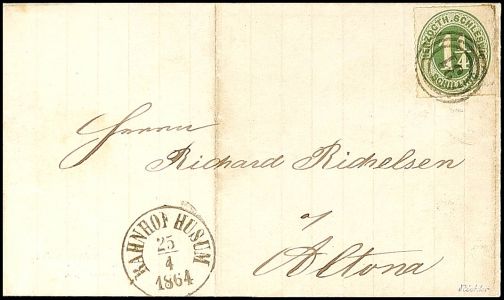 HERZOGTH. SCHLESWIG
1 1/4
SCHILLING
Herrn
Richard Richelsen
a/
Altona
BAHNHOF HUSUM
25
4
1864